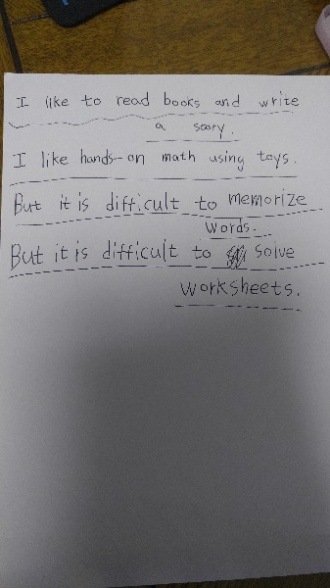 I like to read books and write
a soory.
I like hands-on math using toys.
But it is difficult to memorize
words.
But it is difficult to solve
worksheets.